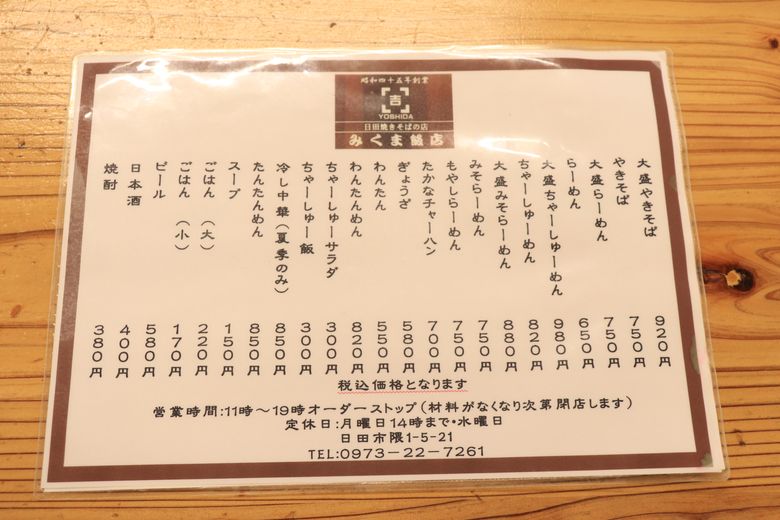 昭和四十五年創業
吉
YOSHIDA
日田焼きそばの店
みくま飯店
大盛やきそば 920円
やきそば 750円
大盛らーめん 750円
らーめん 650円
大盛ちゃーしゅーめん 980円
ちゃーしゅーめん 820円
大盛みそらーめん 880円
みそらーめん 750円
もやしらーめん 750円
たかなチャーハン 700円
ぎょうざ 580円
わんたん 550円
わんたんめん 820円
ちゃーしゅーサラダ 300円
ちゃーしゅー飯 300円
冷し中華(夏季のみ) 850円
たんたんめん 850円
スープ 150円
ごはん (大) 220円
ごはん (小) 170円
ビール 580円
日本酒 400円
焼酎 380円
税込価格となります
営業時間:11時~19時オーダーストップ(材料がなくなり次第閉店します)
定休日:月曜日14時まで・水曜日
日田市隈1-5-21
TEL:0973-22-7261